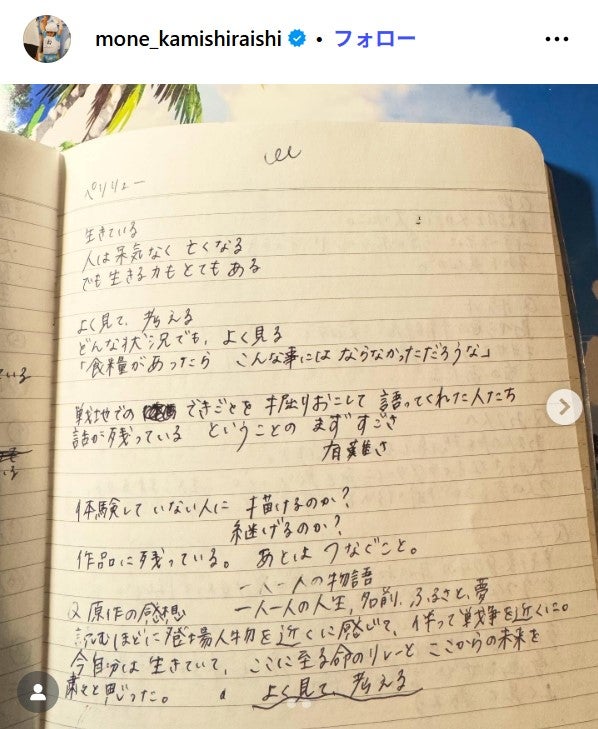 mone_kamishiraishi • フォロー
ペリリュー
生きている
人は呆気なく 亡くなる
でも生きる力もとてもある
よく見て、考える
どんな状況でも、よく見る
「食糧があったら こんな事には ならなかっただろうな」
戦地での できごとを 掘りおこして 語ってくれた人たち
話が残っている ということの まず すごさ
有難さ
体験していない人に 描けるのか?
継げるのか?
作品に残っている。 あとは つなぐこと。
一人一人の物語
又 原作の感想 一人一人の人生、名前、ふるさと、夢
読むほどに登場人物を近くに感じて、伴って戦争を近くに。
今自分は生きていて、ここに至る命のリレーと ここからの未来を
粛々と思った。 よく見て、考える
ている
いる